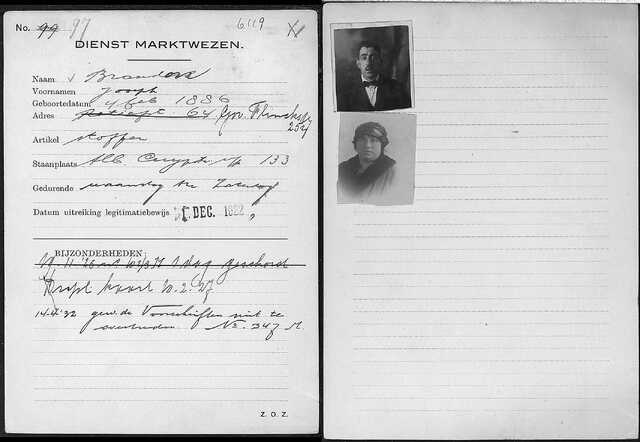 No. 99 97 6119
DIENST MARKTWEZEN.
Naam Brandon
Voornamen Joseph
Geboortedatum 4 Feb 1886
Adres 64 Gov. Flinckstr
254
Artikel stoffen
Staanplaats Alb. Cuypstr 133
Gedurende maandag t/m Zaterdag
Datum uitreiking legitimatiebewijs 1 DEC. 1922
BIJZONDERHEDEN
1 dag geschorst
kaart 10.2.'27
14-4-'32 gew. de Voorschriften niet te
overtreden. No. 347 M.
Z. O. Z.